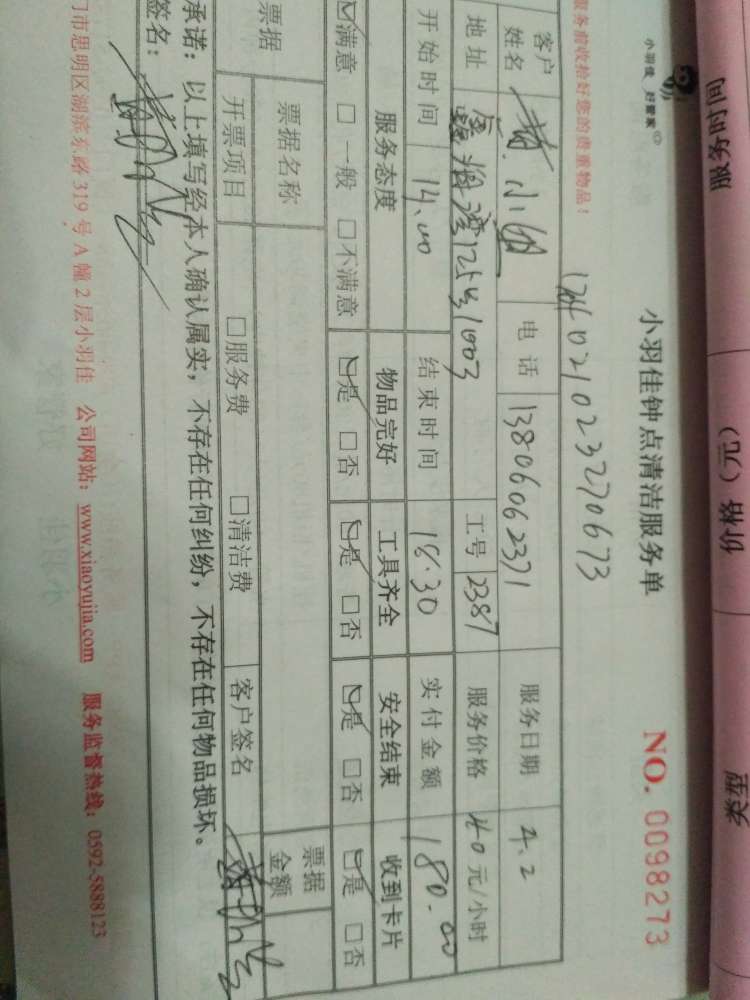 服务时间
价格（元）
类型
小羽佳 好管家
小羽佳钟点清洁服务单
NO. 0098273
服务前收拾好您的贵重物品！
021023270673
客户姓名 小姐 电话 13806062371 服务日期 4.2
地址 125号1003 工号 2387 服务价格 40元/小时
开始时间 14.00 结束时间 18.30 实付金额 180.00
服务态度 物品完好 工具齐全 安全结束 收到卡片
☑满意 □一般 □不满意 ☑是 □否 ☑是 □否 ☑是 □否 ☑是 □否
票据 票据名称 票据金额
开票项目 □服务费 □清洁费 客户签名
承诺：以上填写经本人确认属实，不存在任何纠纷，不存在任何物品损坏。
签名：
门市思明区湖滨东路319号A幢2层小羽佳 公司网站：www.xiaoyujia.com 服务监督热线：0592-5888123